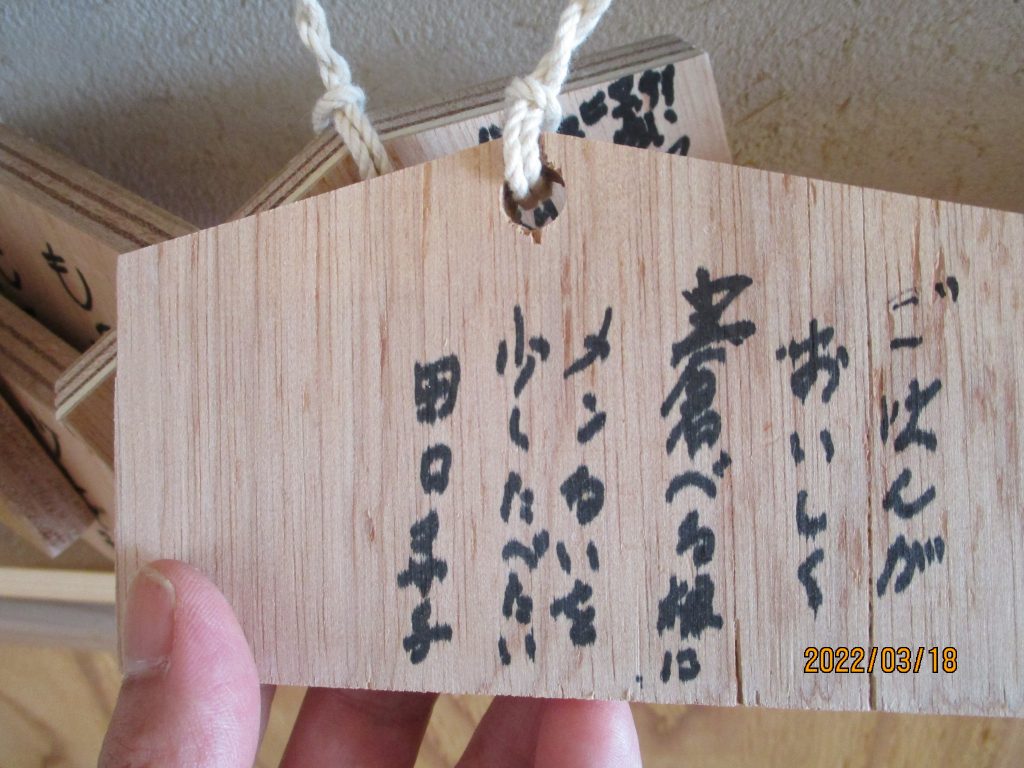 ごはんが
おいしく
食べる様に
メンかいを
少したべたい
田口
2022/03/18